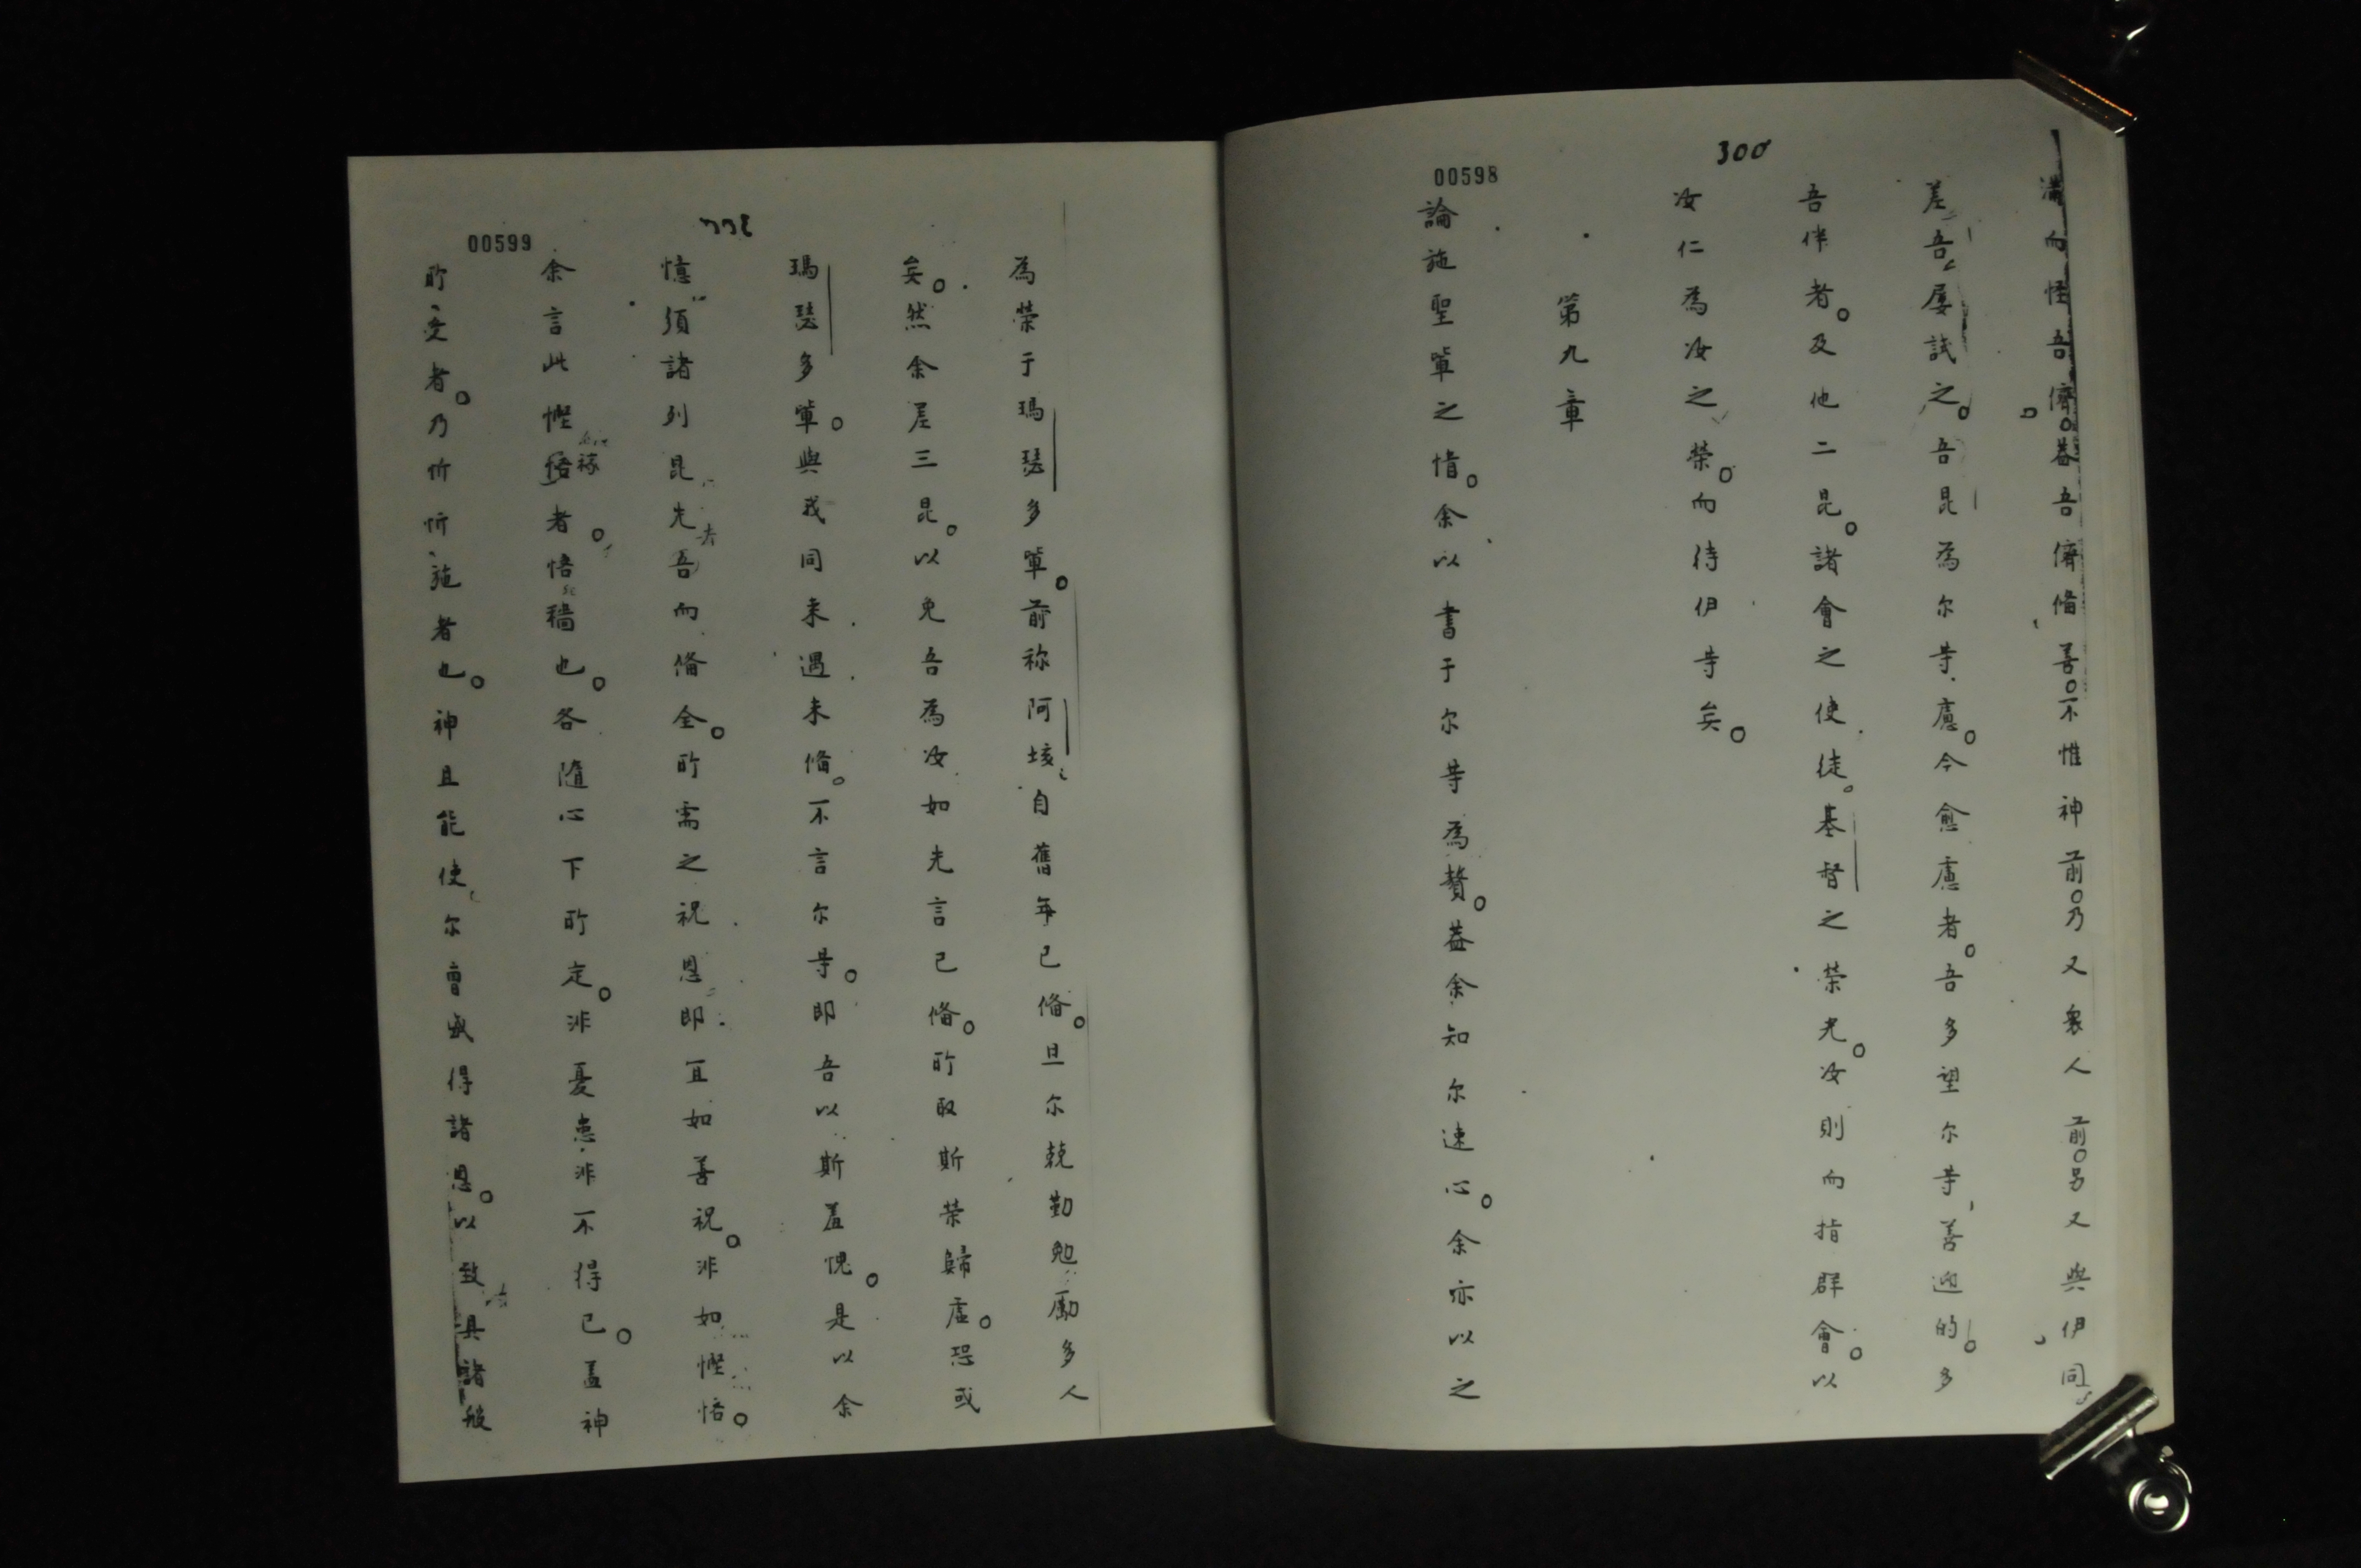 300
00598
滿而怪吾儕。蓋吾儕脩善。不惟神前。乃又衆人前。另又與伊同
差吾屡試之。吾昆為尔等慮。今愈慮者。吾多望尔等善迎的。多
吾伴者。及他二昆。諸會之使徒。基督之榮光。汝則而指群會。以
汝仁為汝之榮。而待伊等矣。
第九章
論施聖輩之惜。余以書于尔等為贅。蓋余知尔速心。余亦以之
00599
為榮于瑪瑟多輩。前称阿垓自舊年已脩。且尔兢勤勉勵多人
矣。然余差三昆。以免吾為汝如先言已脩。所取斯荣歸虛。恐或
瑪瑟多輩。與我同来遇未脩。不言尔等。即吾以斯羞愧。是以余
憶須諸列昆先去吾而脩全。所需之祝恩即宜如善祝。非如慳悋。
余言此慳悋者。悋穡也。各隨心下所定。非憂患非不得已。蓋神
所愛者。乃忻忻施者也。神且能使尔曾盛得諸恩。以致具諸般